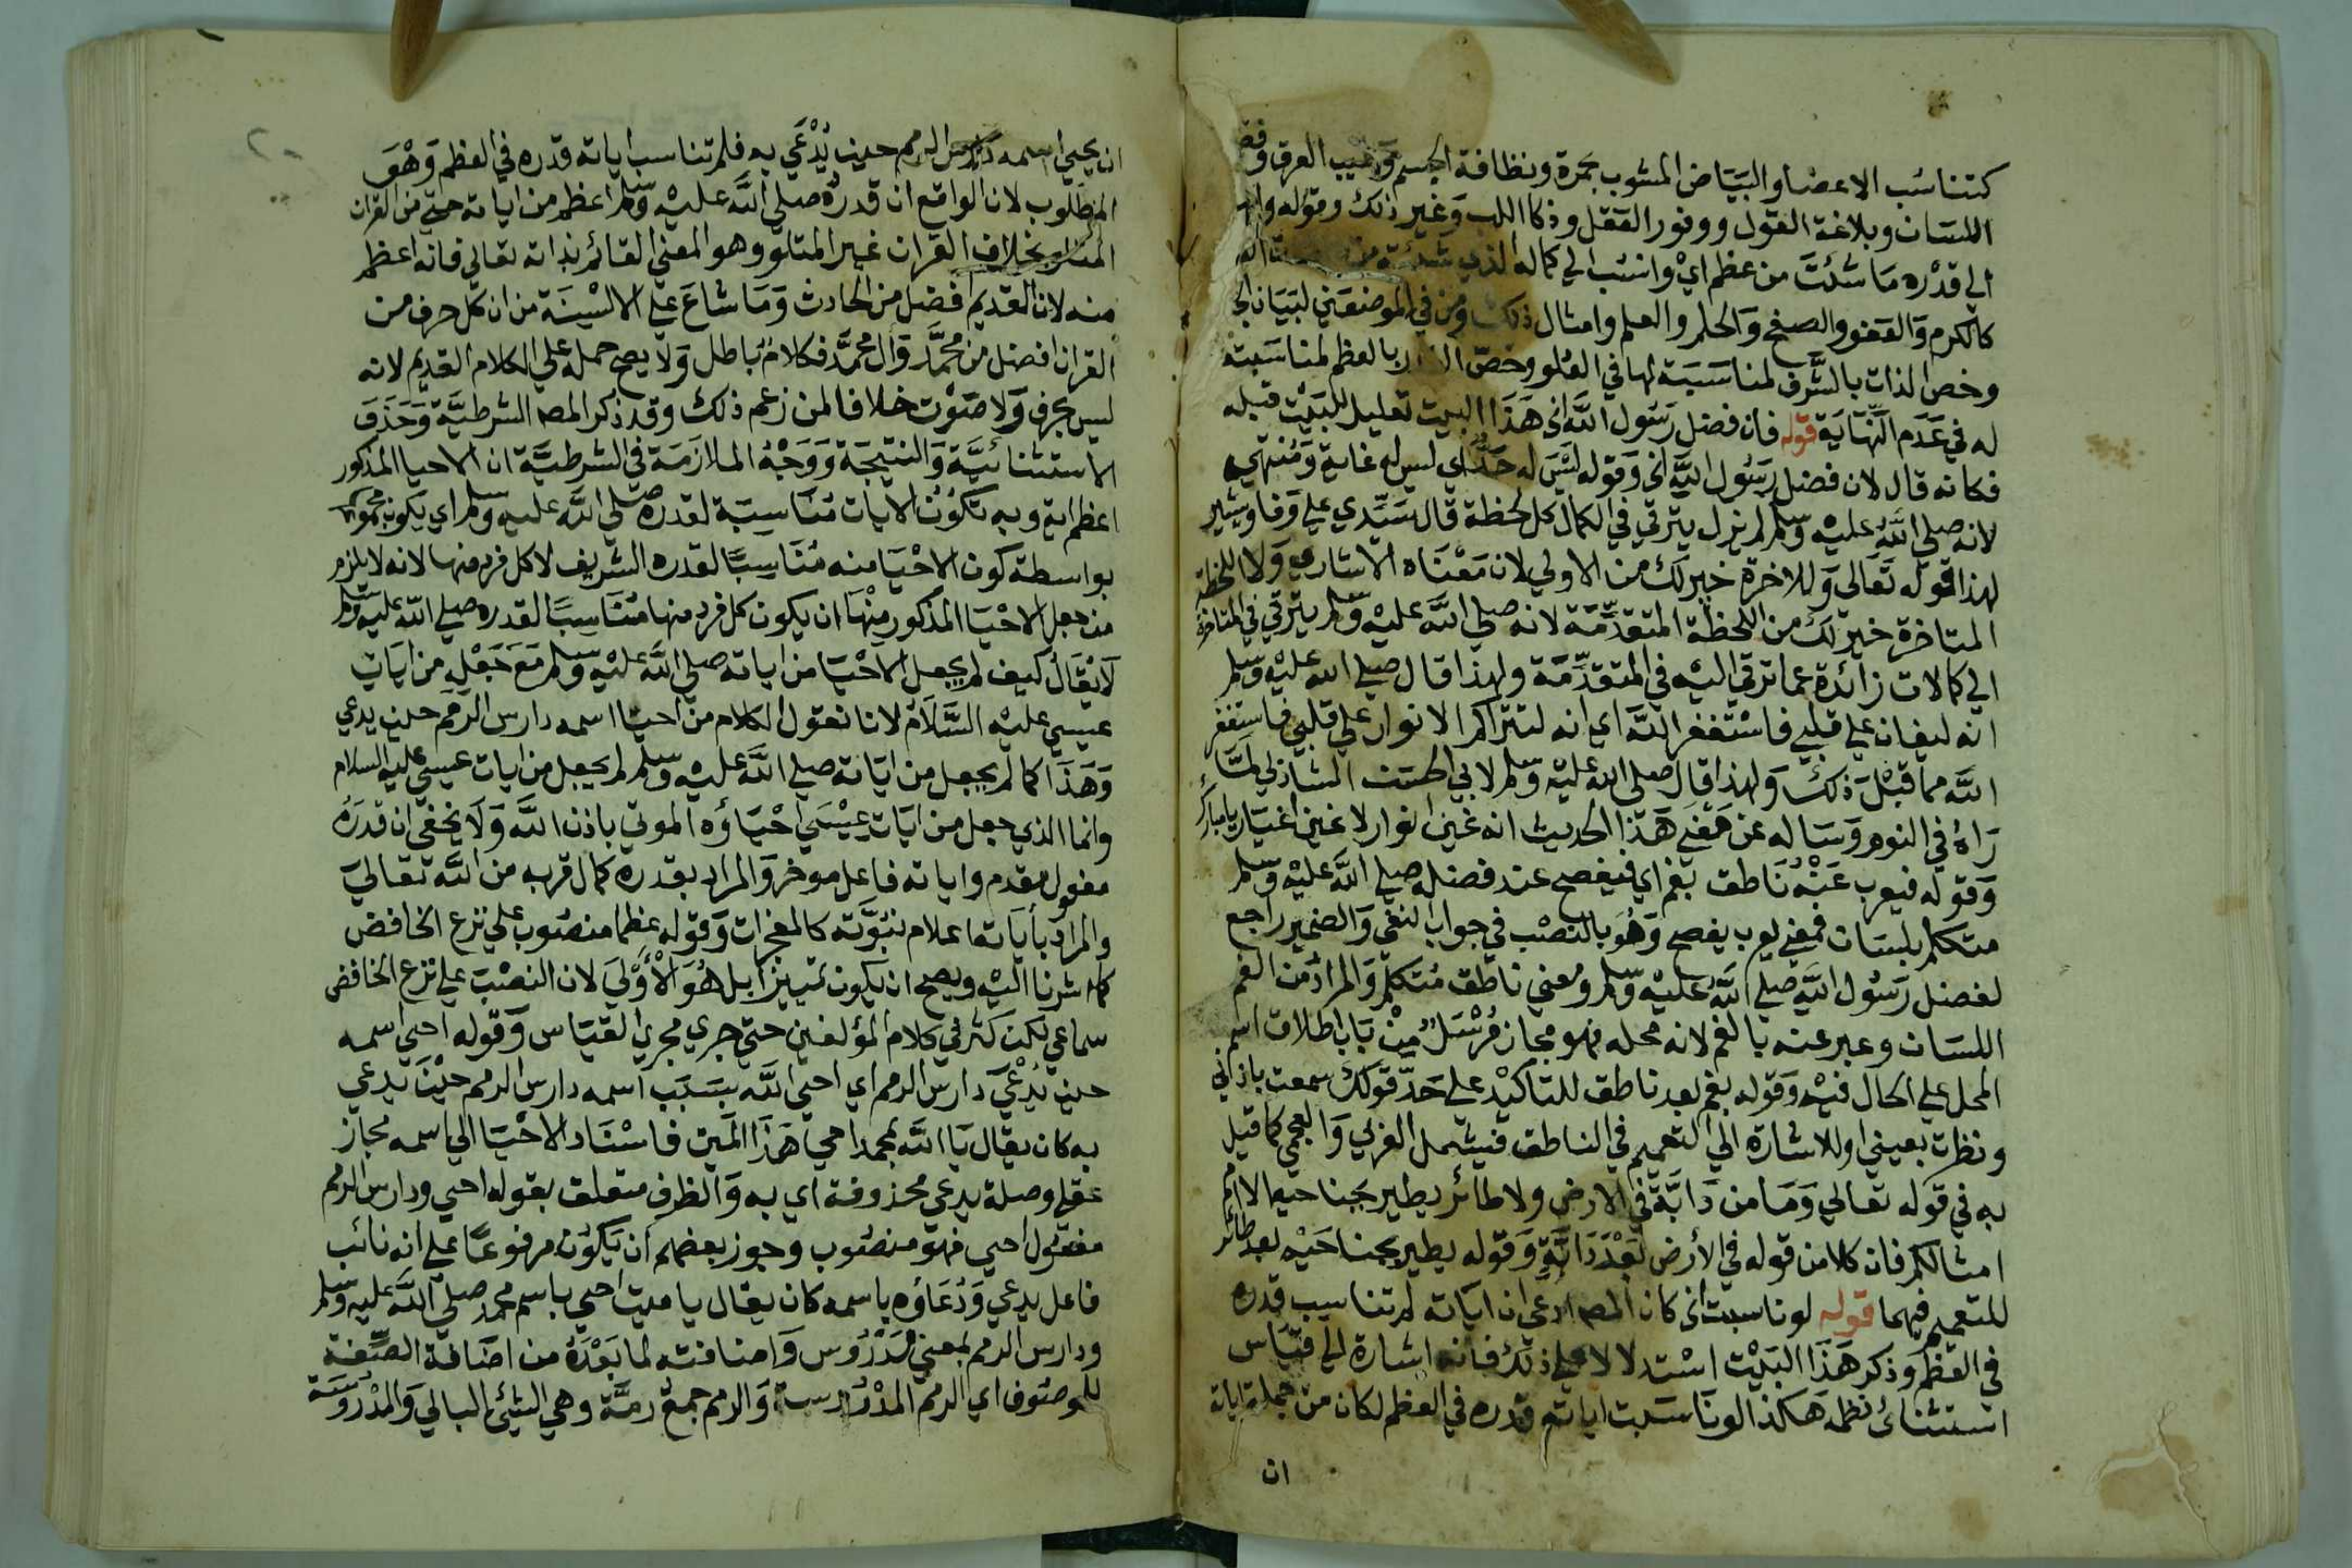 كتناسب الاعضا والبيَاض المشوب بحمرة ونظافة الجسم وطيب العرق وفصا
اللسَان وبلاغة القول ووفور العقل وذكا اللب وَغير ذلك وقوله وانسب
الي قدْره مَا شئتَ من عظم ايْ وانسُب الي كماله الذي شئته من
كالكرم وَالعفو والصفح وَالحلم والعلم وامثال ذلك ومن في الموضعَين لبيَان الجـ
وخص الذات بالشَّرف لمناسَبَة لها في العُلو وخصّ القدر بالعظم لمناسَبته
له في عَدَم النّهَايَة قوله فان فضل رَسُول اللَّه الخ هَذَا البيت تعليل للبَيْت قبله
فكانه قال لان فضل رَسُول اللَّه الخ وَقوله ليْسَ له حَدٌّ اي ليس له غاية وَمُنتهي
لانه صلي اللَّهُ عليْه وَسلم لم يزل يترقي في الكمال كل لحظة قال سَيّدي علي وَفا ويشير
لهذا قوله تَعَالى وَللاخرة خير لك من الاولي لان مَعْنَاه الاشاري وَلا للحظة
المتاخرة خير لك من اللحظة المتقدّمَة لانه صلي اللَّه عليْه وَسلم يترقي في المتاخرة
الي كمالات زائدة عما ترقي اليْه في المتقدّمَة ولهذا قال صلي الله عليْه وَسلم
انه ليغان علي قلبي فاسْتَغفر اللَّه اي انه لتتراكم الانوار علي قلبي فاستغفر
اللَّه مما قبْل ذلك وَلهذا قال صلى الله عليْه وَسلم لابي الحسَن الشاذلي لمَّا
رَاهُ في النوم وَسَاله عن مَعْنَي هَذا الحديث انه غين انوار لا غين اغيَار يا مبارك
وَقوله فيعرب عَنْهُ نَاطق بفم اي فيفصح عند فضله صلي اللَّه عليْه وَسلم
متكلم بلسَان فمعني يعرب يفصح وَهُوَ بالنصْب في جواب النفي وَالضمير راجع
لفضل رَسُول اللَّه صلي اللَّهُ عَليْه وَسلم ومعني ناطق مُتكلم وَالمرادُ من الفم
اللسَان وعبر عنه بالفم لانه محله فهو مجاز مُرْسَلٌ مِنْ بَاب اطلاق اسم
المحل علي الحال فيْه وَقوله بفم بعد ناطق للتاكيْد علي حَدّ قولك سمعت باذني
ونظرت بعيني او للاشارة الي التعميم في الناطق فيشمل العَربي وَالعجمي كما قيل
به في قوله تعالي وَمَا من دَابَّة في الارض ولا طائر يطير بجناحيه الا امم
امثالكم فان كلا من قوله في الأرض بَعْدَ دَابَّةٍ وَقوله يطير بجناحَيْه بعد طائر
للتعميم فيهما قوله لو ناسبت الخ كان المصـ ادعي ان ايَاته لم تناسب قدره
في العظم وَذكر هَذَا البَيْت اسْتدلالا علي ذلك فانه اشارة الي قيَاس
استثنائ نظمه هَكذا لو نَاسَبت اياته قدره في العظم لكان من جملة اياته
ان
ان يحيي اسمه دَارس الرمم حين يُدْعَي به فلم تناسب اياته قدره في العظم وَهْوَ
المطلوب لان الواقع ان قدرَهُ صلي اللَّه عليْه وَسلم اعظم من اياته حتي من القران
المتلو بخلاف القران غير المتلو وهو المعني القائم بذاته تعالي فانه اعظم
منه لان القديم افضل من الحادث وَمَا شاعَ علي الالْسِنَة من ان كل حرف من
القران افضل من محمَّد وَال محمَّد فكلامٌ باطل وَلا يصح حمله علي الكلام القديم لانه
ليس بحرف وَلا صَوْت خلافا لمن زعم ذلك وقد ذكر المصـ الشرطيَّة وَحَذفَ
الاستثنائيَّة وَالنتيجَة وَوَجْهُ الملازَمَة في الشرطيَّة ان الاحيا المذكور
اعظم اية وبه تكوُنُ الايات مُنَاسبَة لقدره صلي اللَّه عليه وَسلم اي يكون مجموعها
بواسطة كون الاحْيَا منه مُنَاسبًا لقدره الشريف لا كل فرد منها لانه لا يلزم
من جعل الاحْيَا المذكور منْهَا ان يكون كل فرد منها مُنَاسبًا لقدره صلي اللّه عليْه وَسلم
لَا يُقَالُ كيف لم يجعل الاحْيَا من اياته صلي اللَّه عليْه وَسلم مَعَ جَعْله من ايَات
عيسي عليْه السَّلَام لانا نقول الكلام من احيا اسمه دارس الرمم حين يدعي
وَهَذَا كما لم يجعل من ايَاته صلي اللَّه عليْه وَسلم لم يجعل من ايات عيسي عليه السلام
وانما الذي جعل من ايَات عيْسَي احْيَاؤه الموتي باذن اللَّه وَلَا يخفي ان قدرَهُ
مفعول مقدم واياته فاعل موخر وَالمراد بقدره كمال قربه من اللَّه تعَالي
والمراد بأياته اعلام نبُوَّته كالمعجزات وَقوله عظما منصُوب علي نزع الخافض
كما اشرنا اليْه ويصح ان يكون تمييزا بل هُوَ الْأَوْلَي لان النصْبَ علي نزع الخافض
سماعي لكن كثر في كلام المؤلفين حتي جري مجري القيَاس وَقوله احي اسمه
حين يُدْعَي دارس الرمم اي احي اللَّه بسَبَب اسمه دارس الرمم حيْنَ يدعي
به كان يقال يَا اللَّه بمحمد احي هَذَا الميّت فاسْنَاد الاحْيَا الي اسمه مجاز
عقلي وصلة يدعي محذوفة اي به وَالظرف متعلق بقوله احيي ودارس الرمم
مفعُول احيي فهوَ منصُوب وجوز بعضهم أن يَكوُن مرفوعًا علي انه نائب
فاعل يدعي وَدُعَاؤه باسمه كان يقال يا ميت احيي باسم محمد صلي اللَّه عليه وَسلم
ودارس الرمم بمعني مَدْرُوس وَاضافته لما بَعْدَهُ من اضَافة الصّفة
للموصُوف اي الرمم المدْروسة وَالرمم جمعُ رمَّة وهي الشئ البالي وَالمدْرُوسَة